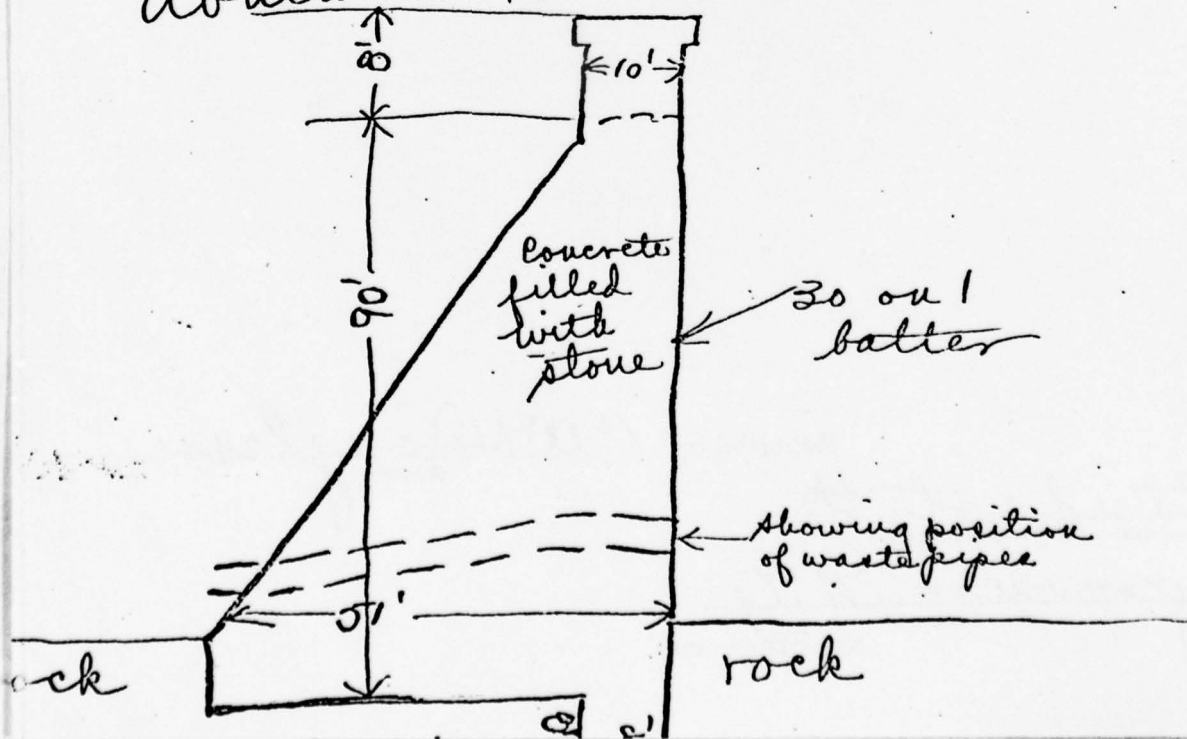 8'
10'
90'
Concrete
filled
with
stone
30 on 1
batter
showing position
of waste pipes
51'
rock
8'